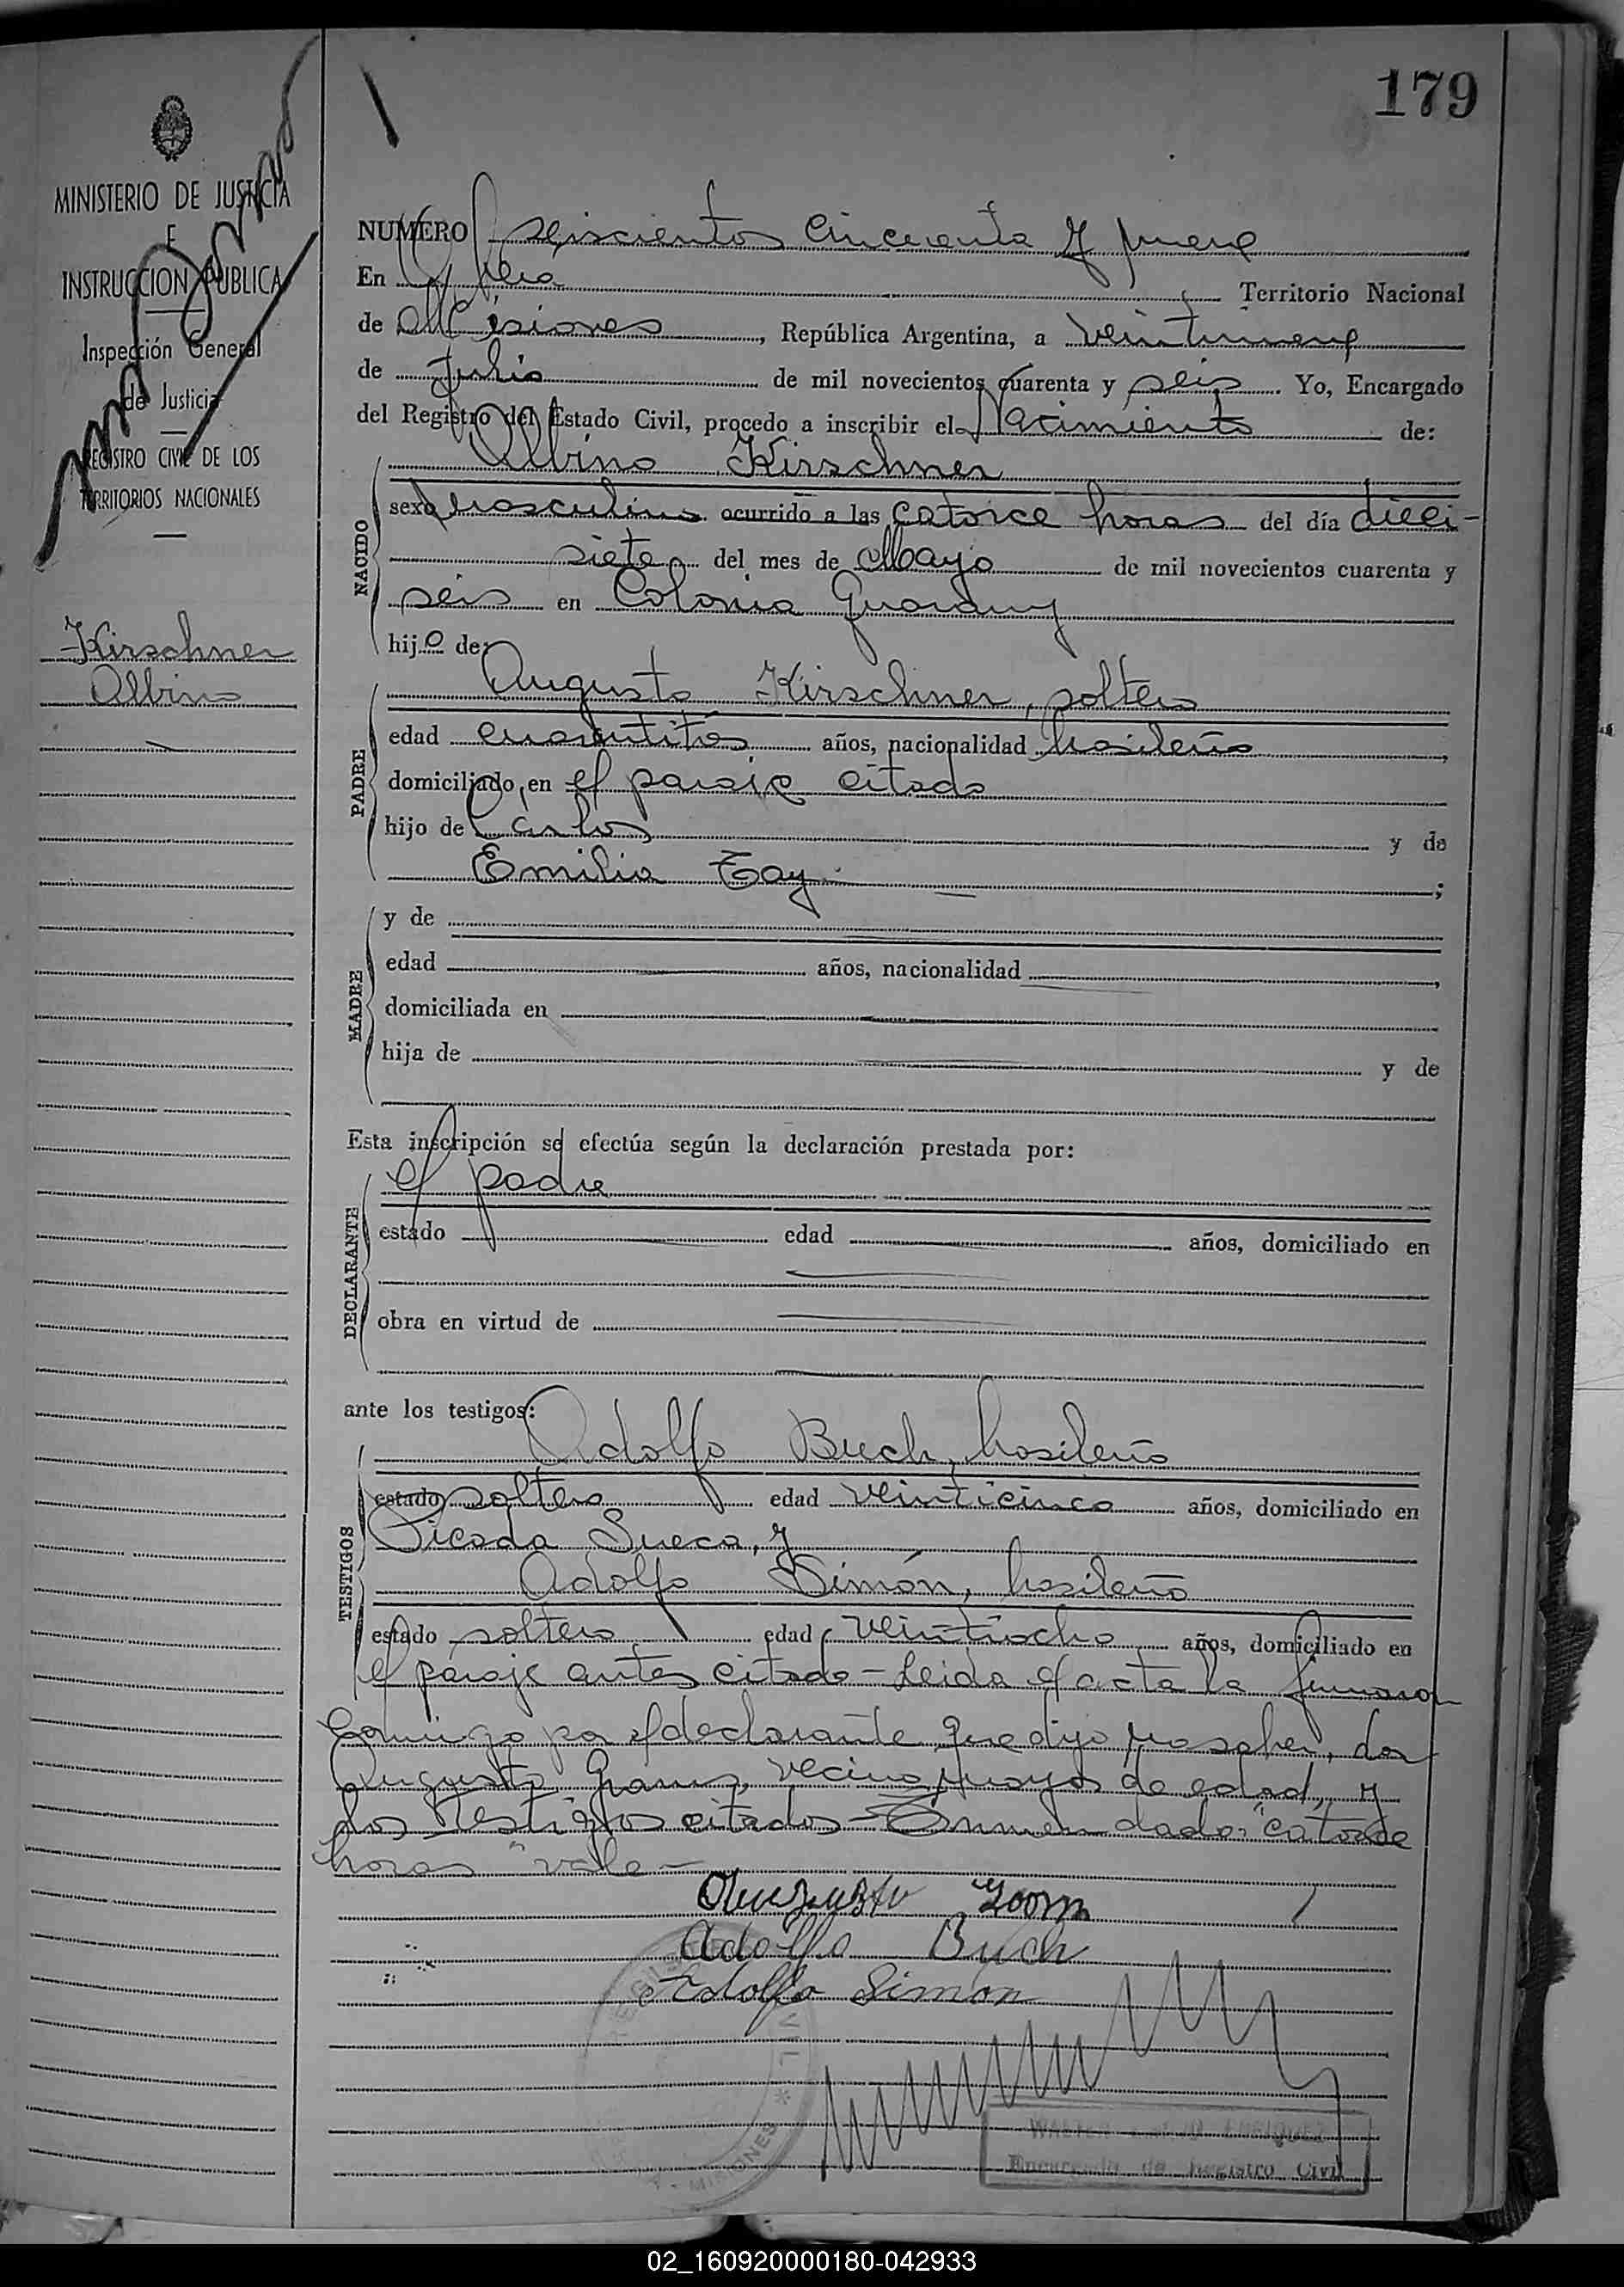 179
MINISTERIO DE JUSTICIA
E
INSTRUCCION PUBLICA
Inspección General
de Justicia
REGISTRO CIVIL DE LOS
TERRITORIOS NACIONALES
Kirschner
Albino
NUMERO seiscientos cincuenta y nueve
En Territorio Nacional
de Misiones, República Argentina, a veintinueve
de Julio de mil novecientos cuarenta y seis. Yo, Encargado
del Registro del Estado Civil, procedo a inscribir el Nacimiento de:
NACIDO
Albino Kirschner
sexo masculino ocurrido a las catorce horas del día dieci-
siete del mes de Mayo de mil novecientos cuarenta y
seis en Colonia Guarany
hijo de:
PADRE
Augusto Kirschner, soltero
edad cuarentitrés años, nacionalidad brasileño
domiciliado en el paraje citado
hijo de Carlos y de
Emilia Tay;
MADRE
y de
edad años, nacionalidad
domiciliada en
hija de y de
Esta inscripción se efectúa según la declaración prestada por:
DECLARANTE
el padre
estado edad años, domiciliado en
obra en virtud de
ante los testigos:
TESTIGOS
Adolfo Buch, brasileño
estado soltero edad veinticinco años, domiciliado en
Picada Sueca, y
Adolfo Simón, brasileño
estado soltero edad veintiocho años, domiciliado en
el paraje antes citado - Leida el acta la firmaron
conmigo por el declarante que dijo no saber, don
Augusto vecino, mayor de edad, y
los testigos citados - Enmendado: "catorce
horas" vale -
Augusto
Adolfo Buch
Adolfo Simón
MISIONES
WALTER ENRIQUEZ
Encargado de Registro Civil
02_160920000180-042933